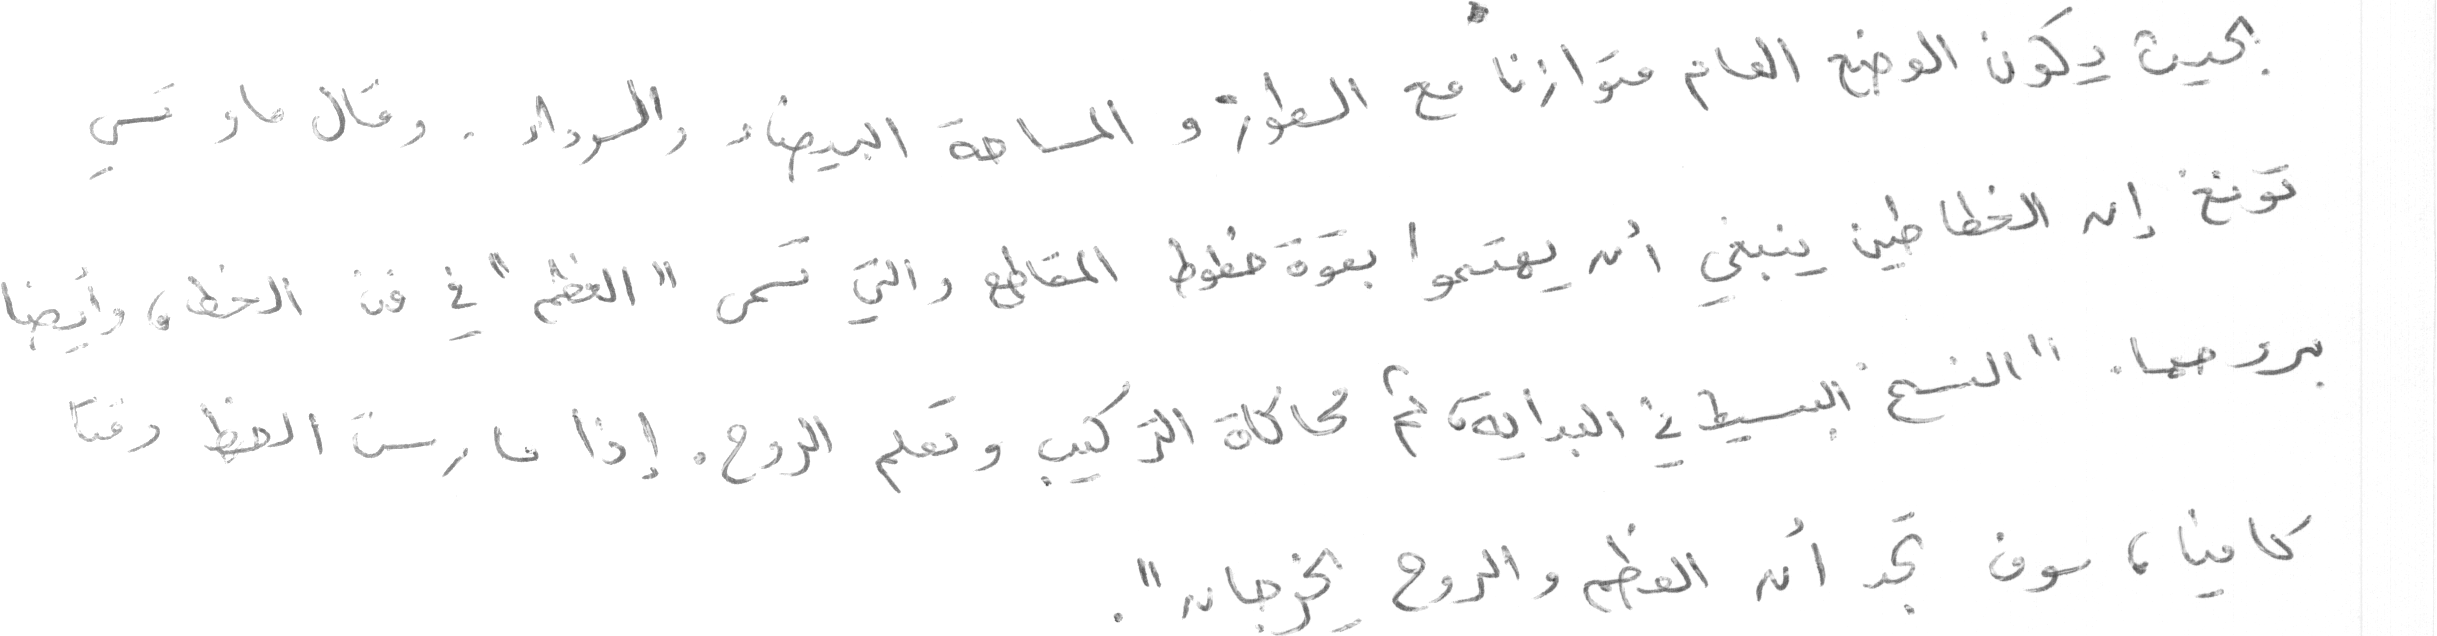 بحيث يكون الوضع العام متوازنا مع السطور و المساحة البيضاء والسوداء . وقال ماو تسي
تونغ إن الخطاطين ينبغي أن يهتموا بقوة خطوط المقاطع والتي تسمى "العظم" في فن الخط، وأيضا
بروحها. "النسخ البسيط في البداية، ثم محاكاة التركيب وتعلم الروح. إذا مارست الخط وقتا
كافيا، سوف تجد أن العظم والروح يخرجان".